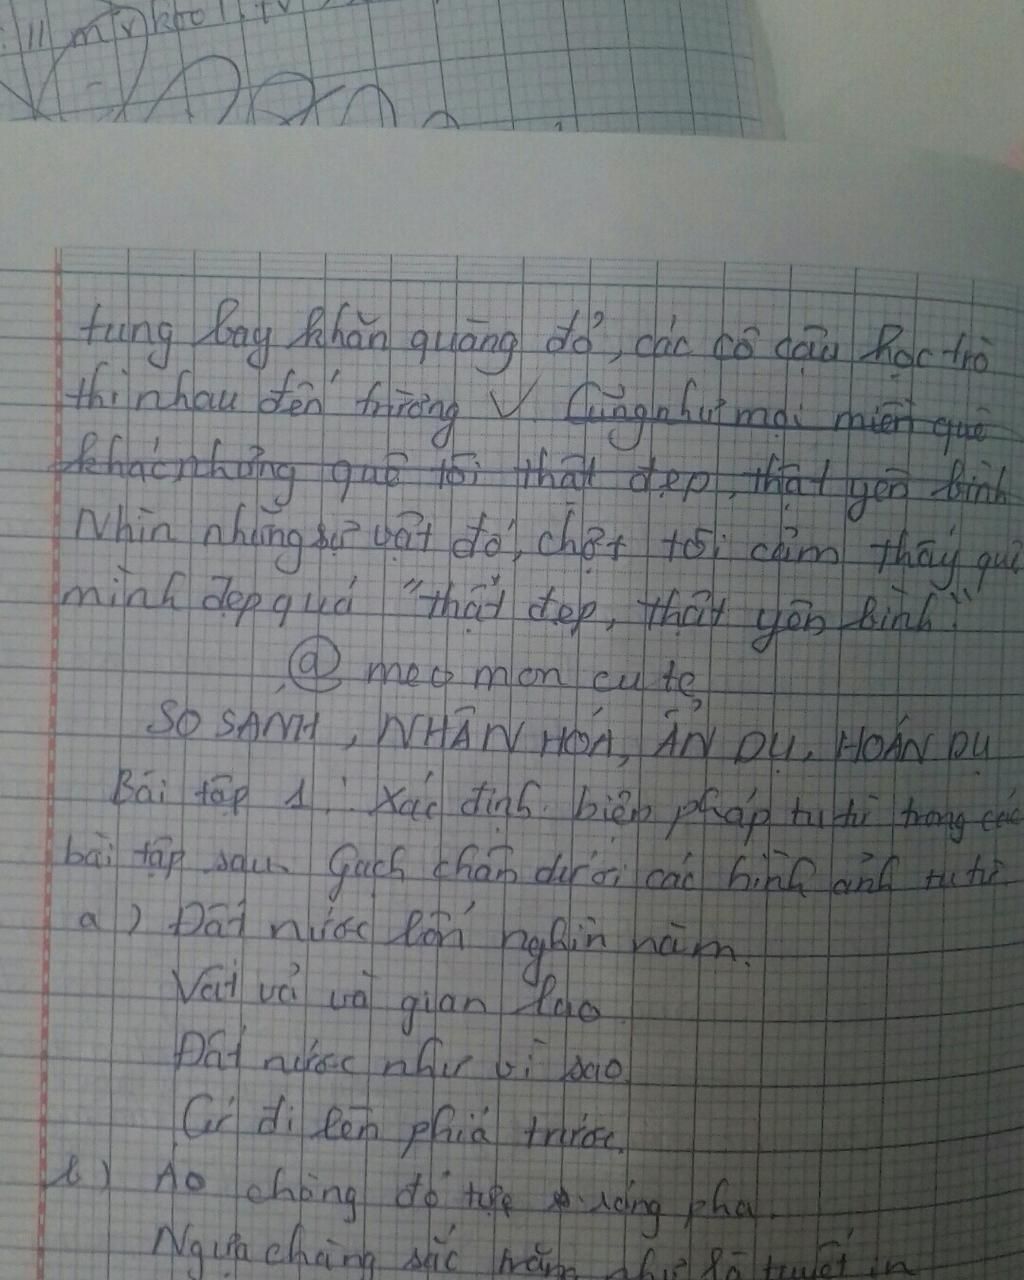 tung bay khăn quàng đỏ, các cô cậu học trò
thi nhau đến trường V Cũng như mọi miền quê
khác nhưng quê tôi thật đẹp, thật yên bình
Nhìn những sự vật đó, chợt tôi cảm thấy quê
mình đẹp quá "thật đẹp, thật yên bình"
@ meo mon cu te
SO SANH, NHÂN HÓA, ẨN DỤ, HOÁN DỤ
Bài tập 1: Xác định biện pháp tu từ trong các
bài tập sau. Gạch chân dưới các hình ảnh tu từ
a) Đất nước bốn nghìn năm.
Vất vả và gian lao
Đất nước như vì sao
Cứ đi lên phiá trước.
b) Áo chàng đỏ tựa ráng pha
Ngựa chàng sắc trắng như là tuyết in